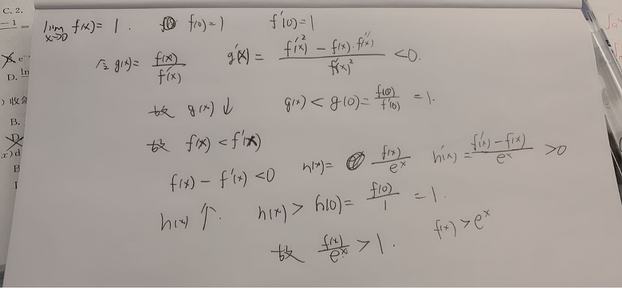 C. 2.
lim x→0 f(x) = 1. f(0)=1 f'(0)=1
令 g(x) = f(x)/f'(x) g'(x) = (f'(x)² - f(x)·f''(x))/f'(x)² < 0.
故 g(x) ↓ g(x) < g(0) = f(0)/f'(0) = 1.
故 f(x) < f'(x)
f(x) - f'(x) < 0 h(x) = f(x)/eˣ h'(x) = (f'(x) - f(x))/eˣ > 0
h(x) ↑. h(x) > h(0) = f(0)/1 = 1.
故 f(x)/eˣ > 1. f(x) > eˣ
D.
B.